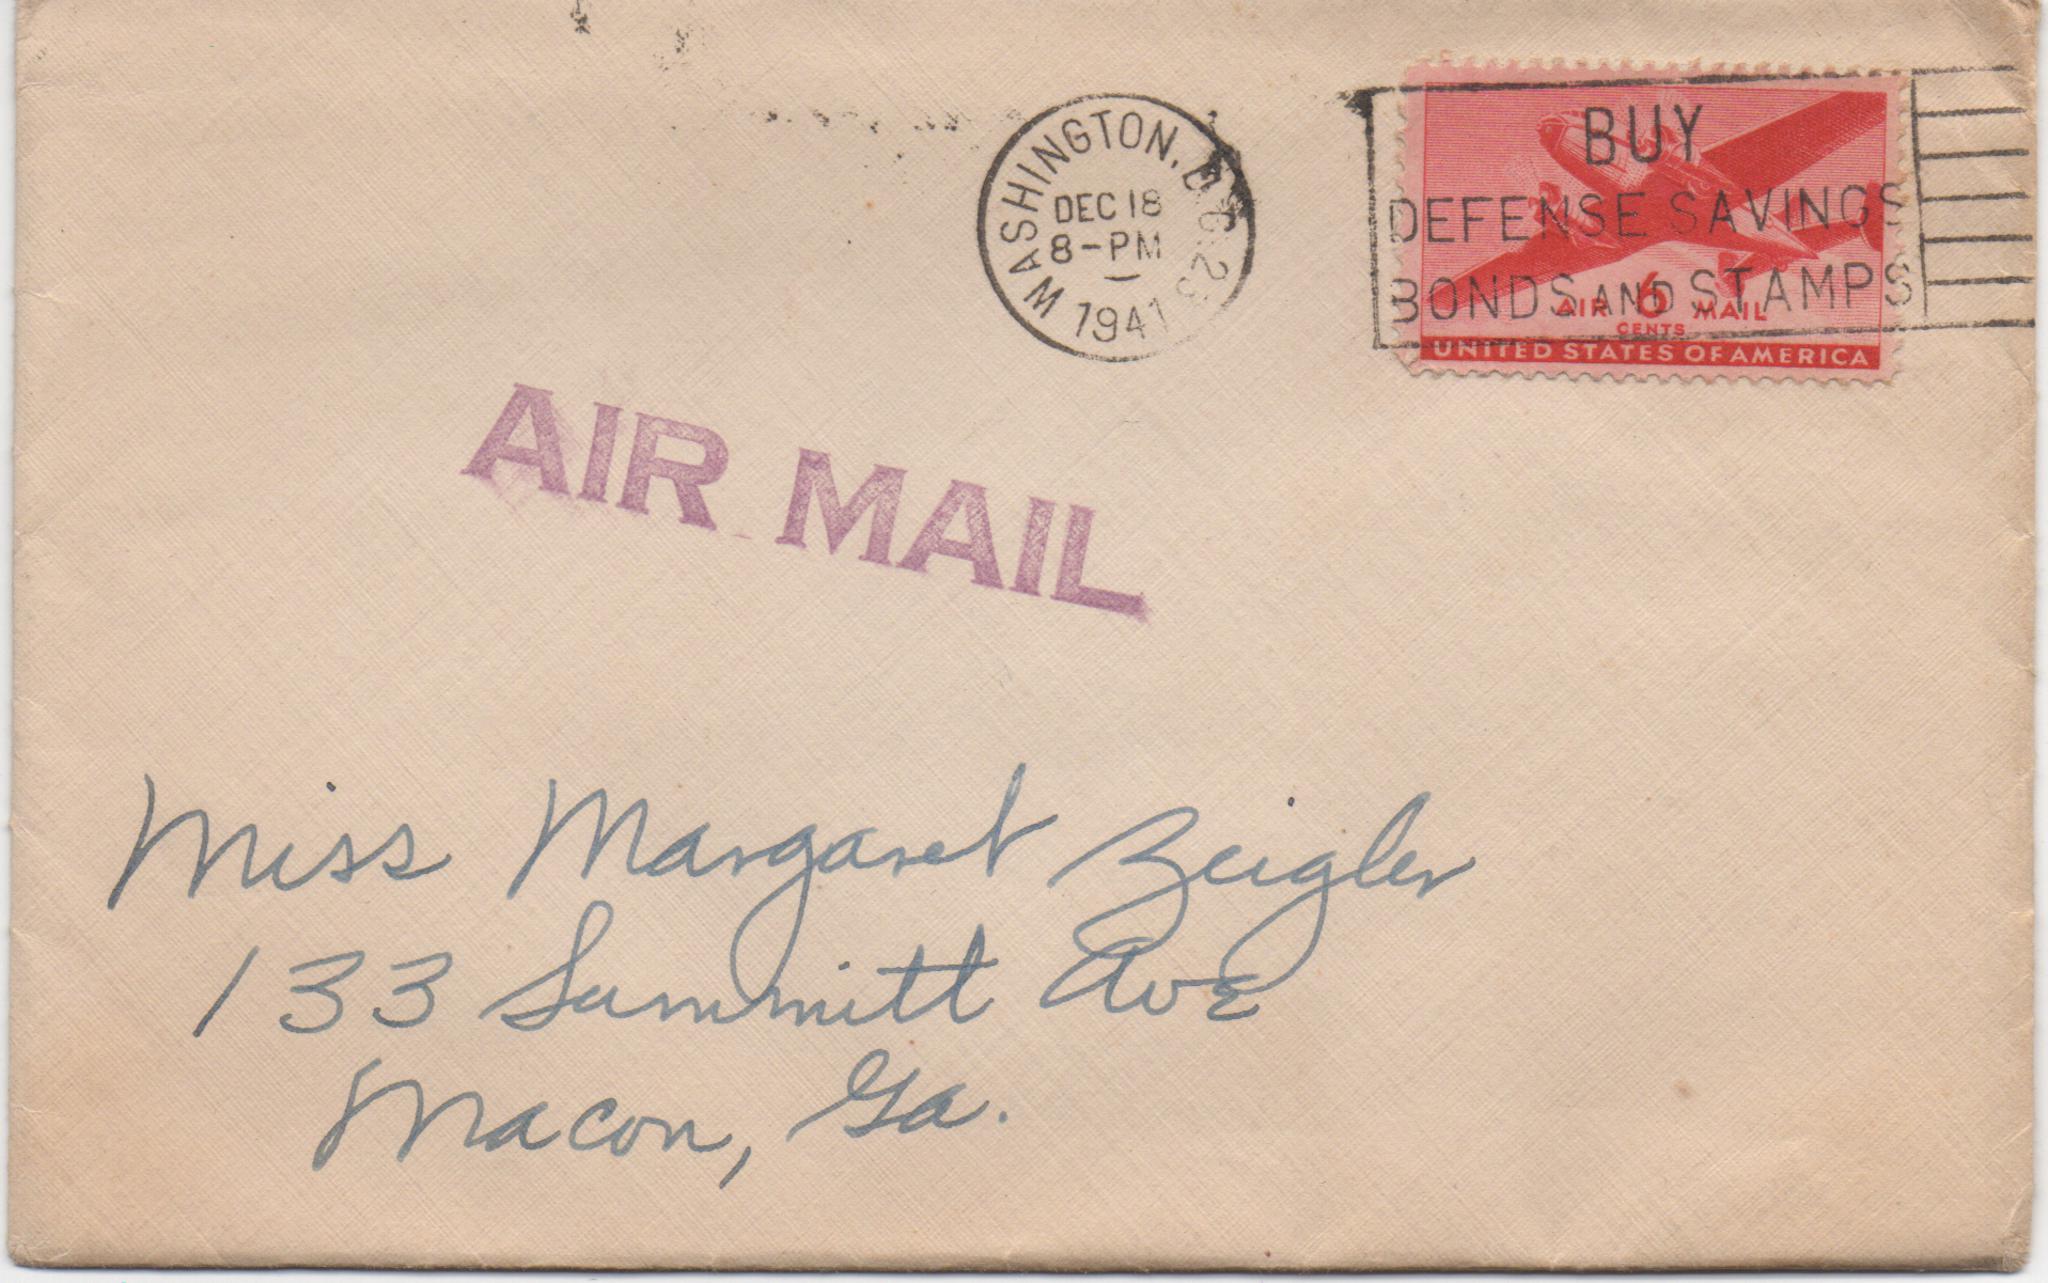 WASHINGTON, D.C. 23
DEC 18
8-PM
1941
BUY
DEFENSE SAVINGS
BONDS AND STAMPS
AIR 6 MAIL
CENTS
UNITED STATES OF AMERICA
AIR MAIL
Miss Margaret Zeigler
133 Summitt Ave
Macon, Ga.